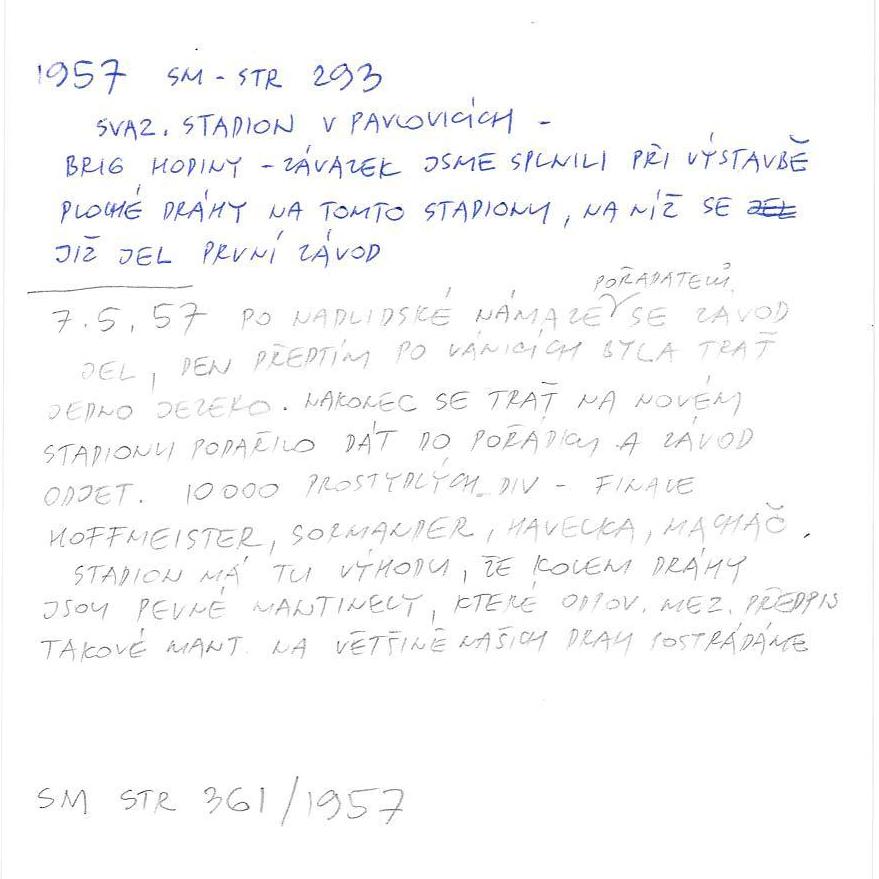 1957 SM - STR 293
SVAZ. STADION V PAVLOVICÍCH -
BRIG HODINY - ZÁVAZEK JSME SPLNILI PŘI VÝSTAVBĚ
PLOCHÉ DRÁHY NA TOMTO STADIONU, NA NÍŽ SE JEL
JIŽ JEL PRVNÍ ZÁVOD
POŘADATELŮ
7.5.57 PO NADLIDSKÉ NÁMAZE SE ZÁVOD
JEL, DEN PŘEDTÍM PO VÁNICÍCH BYLA TRAŤ
JEDNO JEZERO. NAKONEC SE TRAŤ NA NOVÉM
STADIONU PODAŘILO DÁT DO POŘÁDKU A ZÁVOD
ODJET. 10000 PROSTYDLÝCH DIV - FINALE
HOFFMEISTER, SORMANDER, HAVELKA, MACHAČ.
STADION MÁ TU VÝHODU, ŽE KOLEM DRÁHY
JSOU PEVNÉ MANTINELY, KTERÉ ODPOV. MEZ. PŘEDPIS
TAKOVÉ MANT. NA VĚTŠINĚ NAŠICH DRAH POSTRÁDÁME
SM STR 361/1957